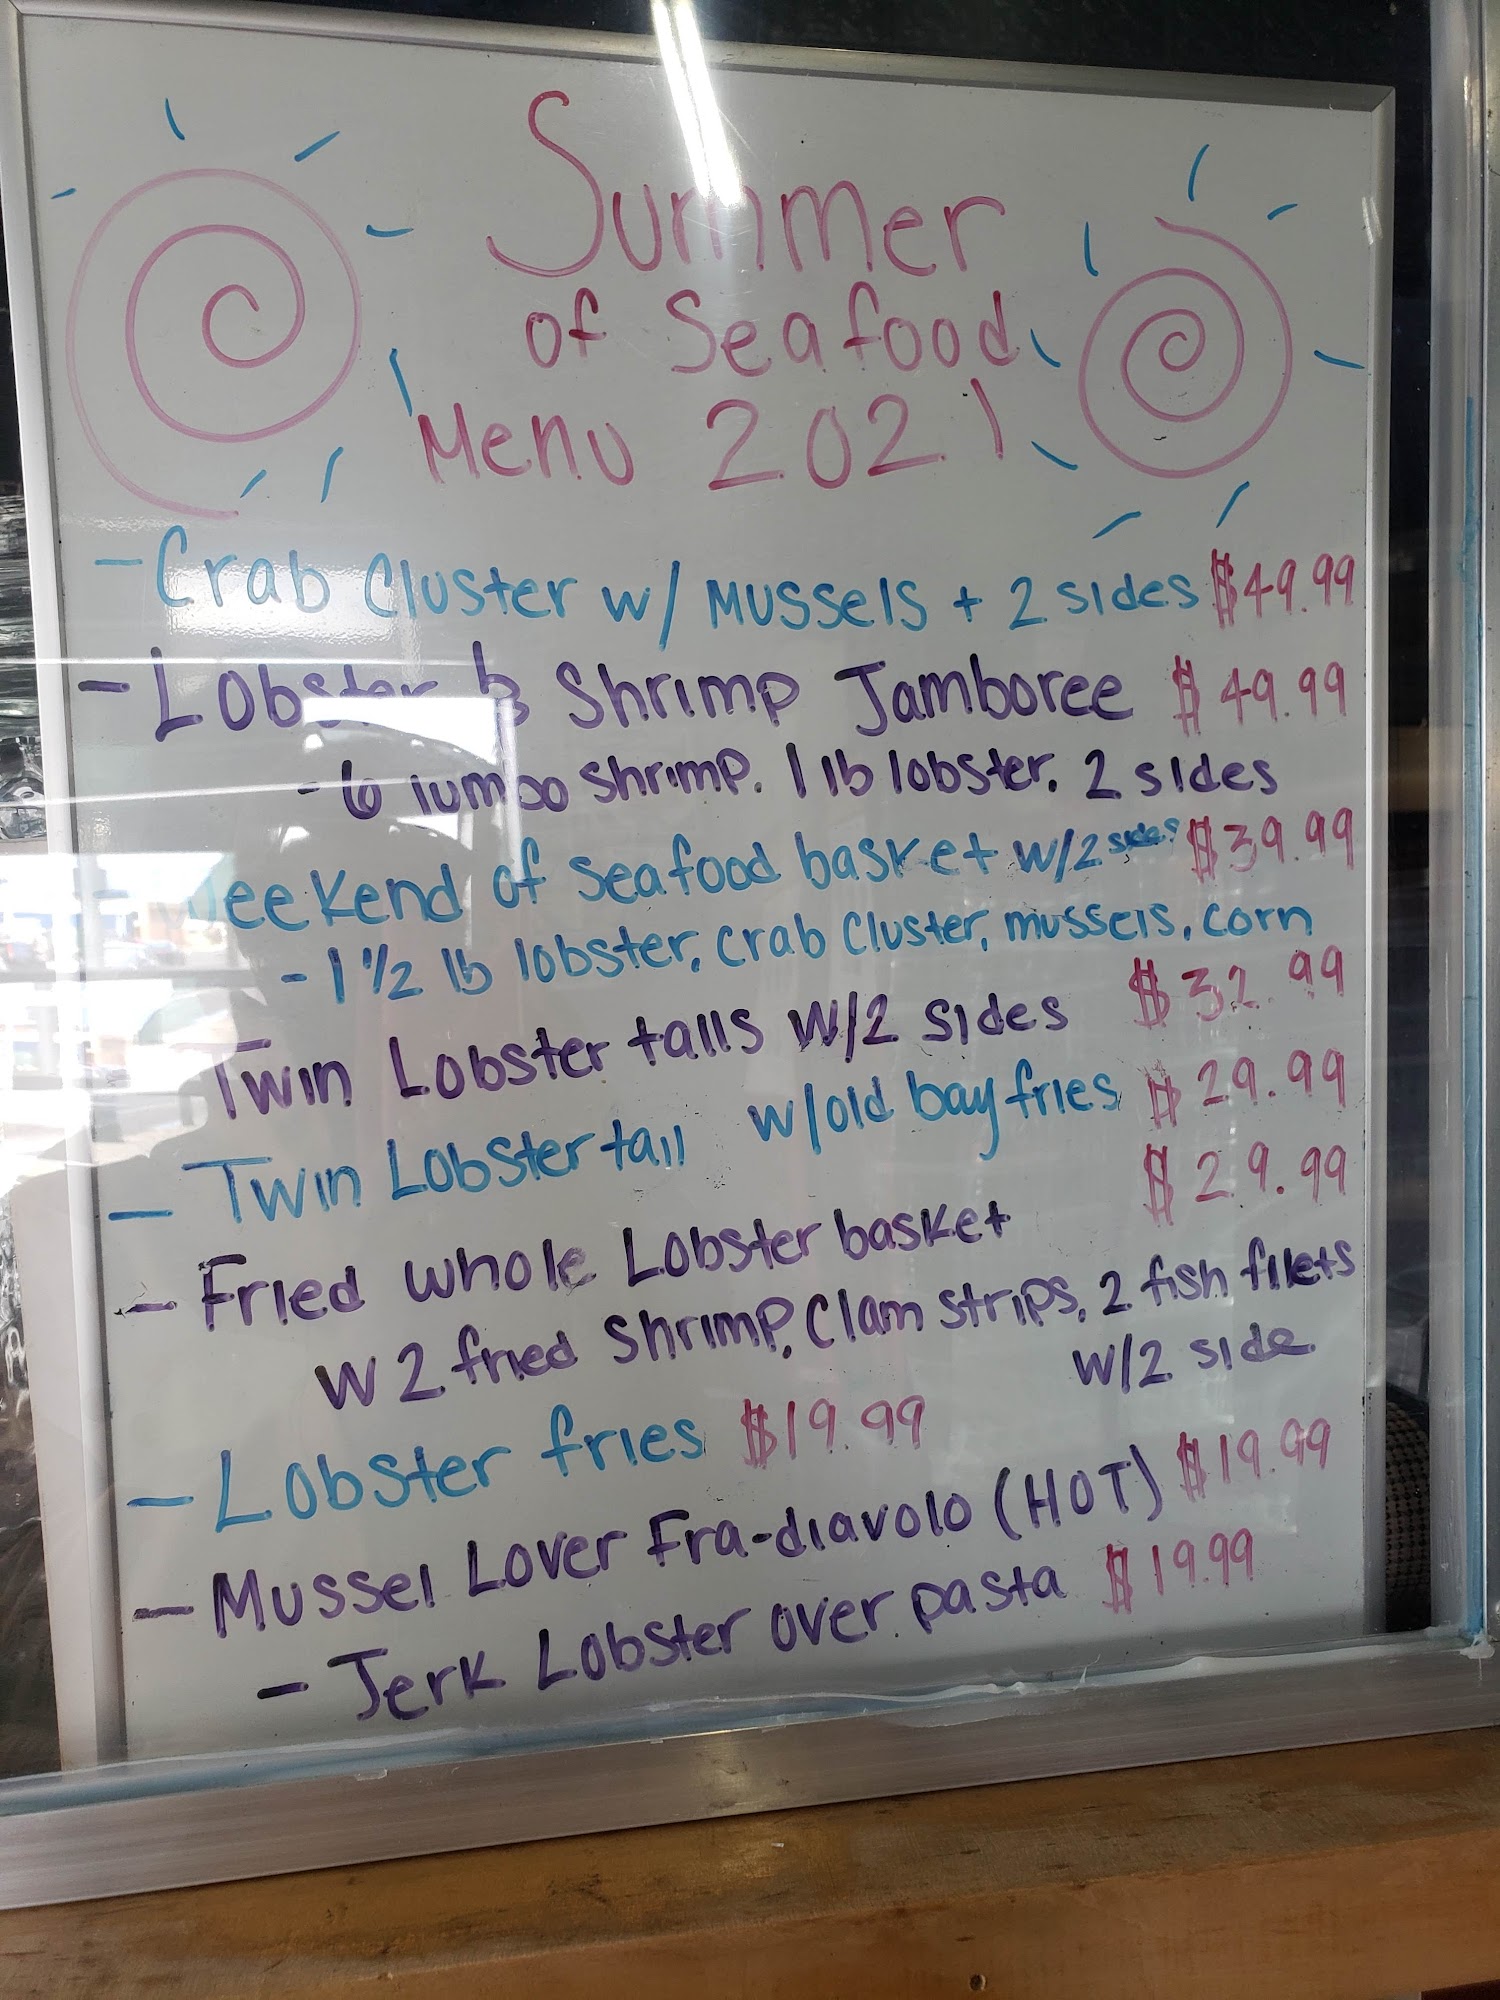 Summer
of Seafood
Menu 2021
- Crab Cluster w/ Mussels + 2 sides $49.99
- Lobster & Shrimp Jamboree $49.99
- 6 Jumbo Shrimp. 1 lb lobster. 2 sides
- Weekend of Seafood basket w/2 sides $39.99
- 1 1/2 lb lobster, crab cluster, mussels, corn
Twin Lobster tails w/2 sides $32.99
- Twin Lobster tail w/old bay fries $29.99
- Fried whole Lobster basket $29.99
w 2 fried Shrimp, Clam strips, 2 fish filets
w/2 side
- Lobster fries $19.99
- Mussel Lover Fra-diavolo (HOT) $19.99
- Jerk Lobster over pasta $19.99